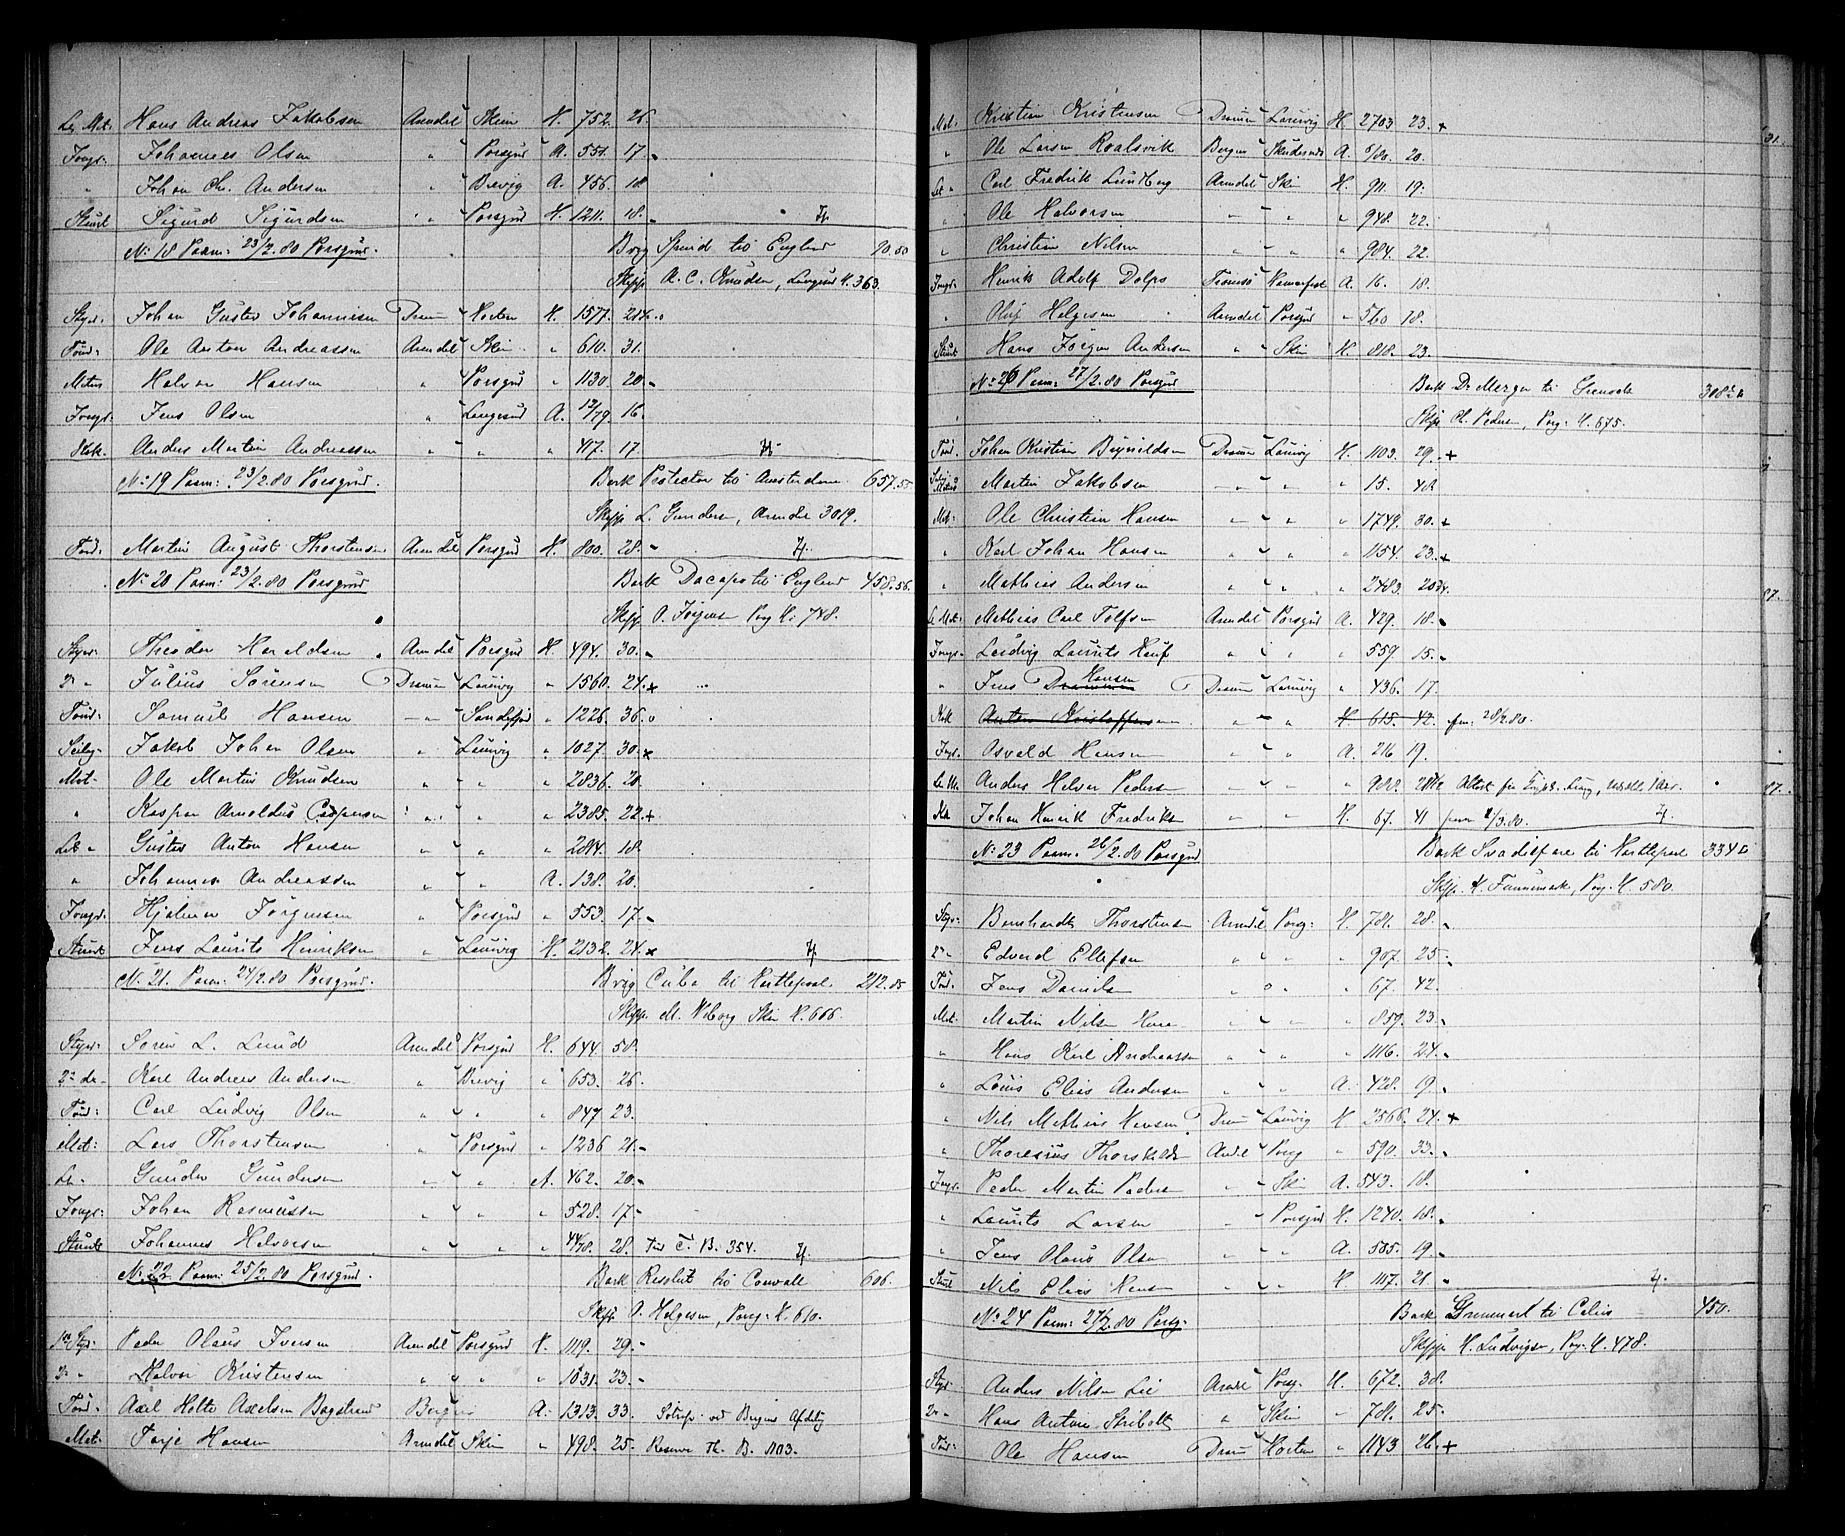 Le Mat: Hans Andreas Jakobsen Arendal Skien H. 752. 26.
Jongs: Johannes Olsen " Porsgrd A. 551. 17.
" Johan Chr. Andersen " Brevig A. 456. 18
Stuert Sigurd Sigurdsen " Porsgrd H. 1211. 18.
No 18 Paam: 23/2.80 Porsgrd. Brig Speid til England 90.50
Skipp A. C. Knudsen, Langesd H. 363.
Styr: Johan Gustav Johannesen Dram Horten H. 1577. 21
Tømd: Ole Anton Andreassen Arendal Skien " 610. 31.
Matrs Halvor Hansen " Porsgrd " 1130. 20.
Jongs: Jens Olsen " Langesd A. 12/79. 16.
Kok. Anders Martin Andreassen " " " 417. 17
No 19 Paam: 23/2.80 Porsgrd. Bark Protector til Amsterdam 657.55
Skipp L. Gundersen, Arendal 3019.
Tømd: Martin August Thorstensen Arendal Porsgrd H. 800. 28.
No 20 Paam: 23/2.80 Porsgrd Bark Dacapo til England 458.56.
Skipp O. Jørgensen Porsg H. 748.
Styr: Theodor Haraldsen Arendal Porsgrd H. 494. 30.
2 " Julius Sørensen Dram Laurvig " 1560. 24. +
Tømd: Samuel Hansen " Sandefjd " 1226. 36.
Seilm: Jakob Johan Olsen " Laurvig " 1027. 30. x
Mat. Ole Martin Knudsen " " " 2836. 20.
" Kasper Arnoldus Caspersen " " " 2385. 22. +
Let " Gustav Anton Hansen " " " 2814. 18.
" Johannes Andreassen " " A. 138. 20.
Jongs: Hjalmar Jørgensen " Porsgrd " 553. 17.
Stuert Jens Laurits Henriksen " Laurvig H. 2132. 24. x
No 21. Paam: 24/2.80 Porsgrd. Brig Cuba til Hartlepool 212.85
Skipp. M. Wiborg Skien H. 666.
Styr: Søren L. Lund Arendal Porsgrd H. 644. 58.
2n do Karl Andreas Andersen " Brevig " 653. 26.
Tømd: Carl Ludvig Olsen " " " 847. 23.
Mat: Lars Thorstensen " Porsgrd " 1236 21.
Le. Gunder Gundersen " " A. 462. 20.
Jongs: Johan Rasmussen " " " 528. 17.
Stuert Johannes Halvorsen " " " 44/78. 28. Tid. T. B. 354.
No 22 Paam: 25/2.80 Porsgrd. Bark Resolut til Cornvall 606.
Skipp O. Helgesen, Porsg. H. 610.
1ste Styr: Peder Olaus Iversen Arendal Porsgrd H. 1119. 29.
2 " Halvor Kristensen " " " 1031. 23.
Tømd: Axel Holte Axelsen Bagstrand Bergen A. 1313. 33. ved Bergens Afdeling
Mat: Terje Hansen Arendal Skien " 498. 25. Reserve Th. B. 1103.
Mat: Kristian Kristensen Dram Laurvig H. 2703 23. +
" Ole Larsen Roalsvik Bergen Skudesnæs A. 5/80. 20.
Let " Carl Fredrik Lundberg Arendal Skien H. 911. 19.
" Ole Halvorsen " " " 948. 22.
" Christian Nilsen " " " 984. 22.
Jongs: Henrik Adolf Dolps Tromsø Hammerfest A. 16. 18.
" Oluf Helgesen Arendal Porsgrd " 560 18.
Stuert Hans Jørgen Andersen " Skien H. 818. 23.
Paam: 27/2.80 Porsgrd Bark Dr Mergen til Grensada 308
Skip Ch. Pedersen, Porsg. H. 675.
Tømd: Johan Kristian Brynildsen Dram Laurvig H. 1103. 29. +
Martin Jakobsen " " " 15. 48.
Mat: Ole Christian Hansen " " " 1749. 30. +
" Karl Johan Hansen " " " 1154. 23. +
" Mathias Andersen " " " 2483. 20
Le Mat: Mathias Carl Tolfsen Arendal Porsgrd A. 429. 18.
Jongs: Ludvig Laurits Hauf " " " 559. 15.
" Jens Hansen Dram Laurvig " 436. 17.
Kok Anton Kristoffersen " " H 615. 42. fm: 28/2.80.
Jngs. Osvald Hansen " " A. 216 19.
Le Ma. Anders Helvor Pedersen " " " 900.
Kok Johan Henrik Fredriksen " " H. 67. 41
No 23 Paam: 26/2.80 Porsgrd Bark Svadilfare til Hartlepool 334
Skipp. H. Funnemark, Porsg. H. 580.
Styr: Bernhardt Thorstensen Arendal Porsg: H. 781. 28.
2n Edvard Ellefsen " " " 907. 25.
Tømd: Jens Danielsen " " " 67. 42.
Mat: Martin Nilsen " " " 859. 23.
" Hans Karl Andreassen " " " 1116. 24.
" Louis Elias Andersen " " A. 428. 19.
" Nils Mathias Hansen Dram Laurvig H 2566. 24. +
" Thoresius Thorkilds Arndl Porsg " 590. 33.
Jngs: Peder Martin Pedersen " Skien A. 543. 18.
" Laurits Larsen " Porsgrd H. 1240. 18.
" Jens Olaus Olsen " " A. 585. 19.
Stuert Nils Elias Hansen " " H. 1107. 21.
No 24 Paam: 27/2.80 Porsg. Bark til Calais 450.
Skipp H. Ludvigsen, Porsg. H. 478.
Styr Anders Nilsen Lie Arendl Porsg. H. 672. 38.
2n " Hans Anton " Skien " 781. 25.
Tømd: Ole Hansen Dram Horten " 1143 26. +